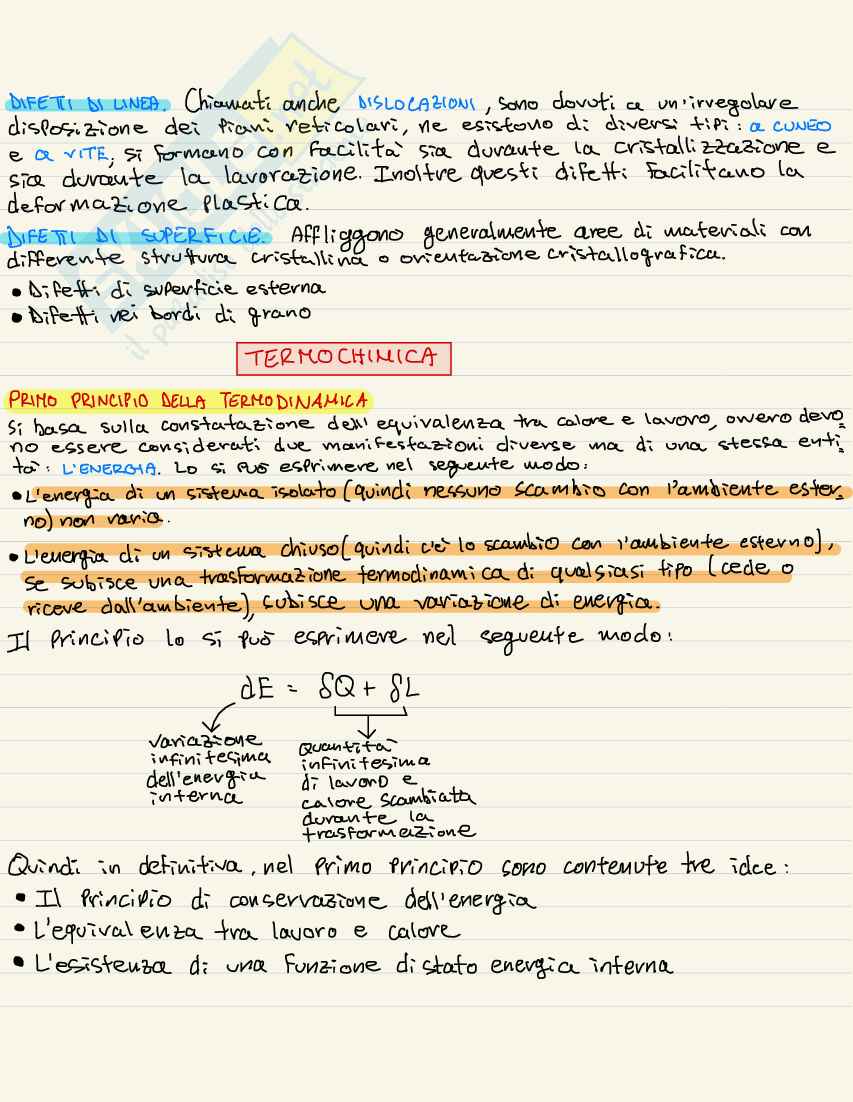 DIFETTI DI LINEA. Chiamati anche DISLOCAZIONI, sono dovuti a un'irregolare
disposizione dei piani reticolari, ne esistono di diversi tipi: a CUNEO
e a VITE, si formano con facilità sia durante la cristallizzazione e
sia durante la lavorazione. Inoltre questi difetti facilitano la
deformazione plastica.
DIFETTI DI SUPERFICIE. Affliggono generalmente aree di materiali con
differente struttura cristallina o orientazione cristallografica.
• Difetti di superficie esterna
• Difetti nei bordi di grano
TERMOCHIMICA
PRIMO PRINCIPIO DELLA TERMODINAMICA
Si basa sulla constatazione dell'equivalenza tra calore e lavoro, ovvero devo_
no essere considerati due manifestazioni diverse ma di una stessa enti_
tà: L'ENERGIA. Lo si può esprimere nel seguente modo:
• L'energia di un sistema isolato (quindi nessuno scambio con l'ambiente ester_
no) non varia.
• L'energia di un sistema chiuso (quindi c'è lo scambio con l'ambiente esterno),
se subisce una trasformazione termodinamica di qualsiasi tipo (cede o
riceve dall'ambiente), subisce una variazione di energia.
Il principio lo si può esprimere nel seguente modo:
dE = δQ + δL
variazione
infinitesima
dell'energia
interna
Quantità
infinitesima
di lavoro e
calore scambiata
durante la
trasformazione
Quindi in definitiva, nel primo principio sono contenute tre idee:
• Il principio di conservazione dell'energia
• L'equivalenza tra lavoro e calore
• L'esistenza di una funzione di stato energica interna